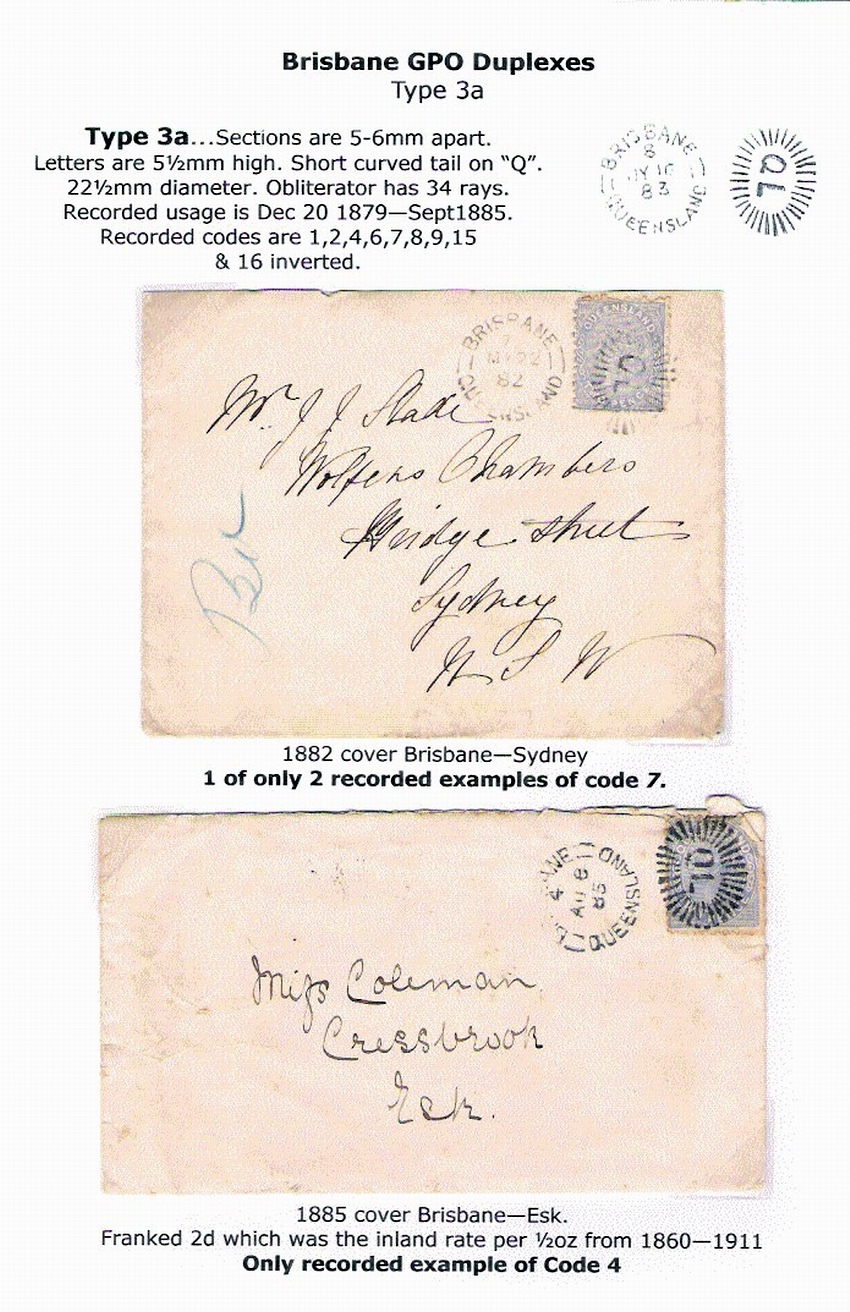 Brisbane GPO Duplexes
Type 3a
Type 3a...Sections are 5-6mm apart.
Letters are 5½mm high. Short curved tail on “Q”.
22½mm diameter. Obliterator has 34 rays.
Recorded usage is Dec 20 1879—Sept1885.
Recorded codes are 1,2,4,6,7,8,9,15
& 16 inverted.
BRISBANE
8
JY 16
83
QUEENSLAND
QL
BRISBANE
7
82
QUEENSLAND
QUEENSLAND
QL
Mr J J Slade
Chambers
Bridge Street
Sydney
N S W
1882 cover Brisbane—Sydney
1 of only 2 recorded examples of code 7.
ANE
4
AU 8
85
QUEENSLAND
QL
Miss Coleman
Cressbrook
Esk.
1885 cover Brisbane—Esk.
Franked 2d which was the inland rate per ½oz from 1860—1911
Only recorded example of Code 4